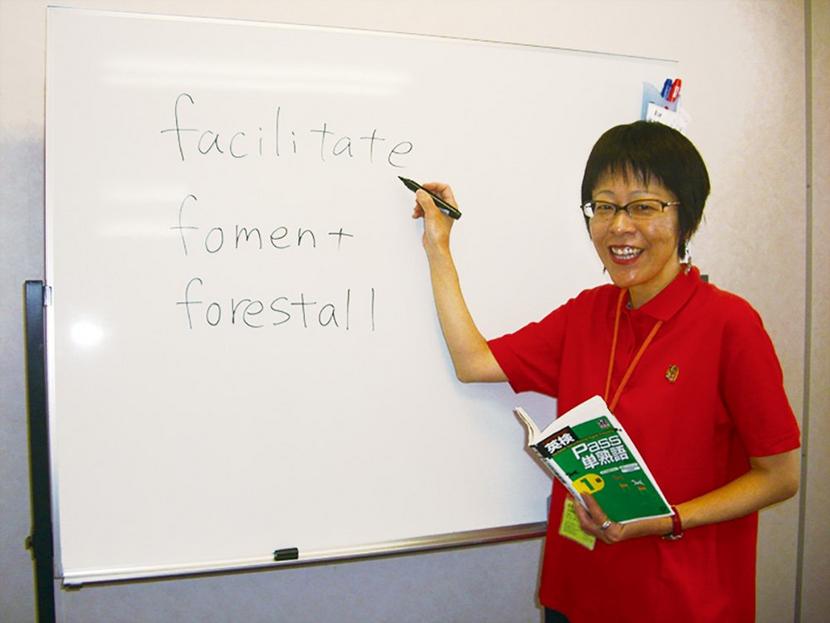 facilitate
foment
forestall
英検
Pass
単熟語
1